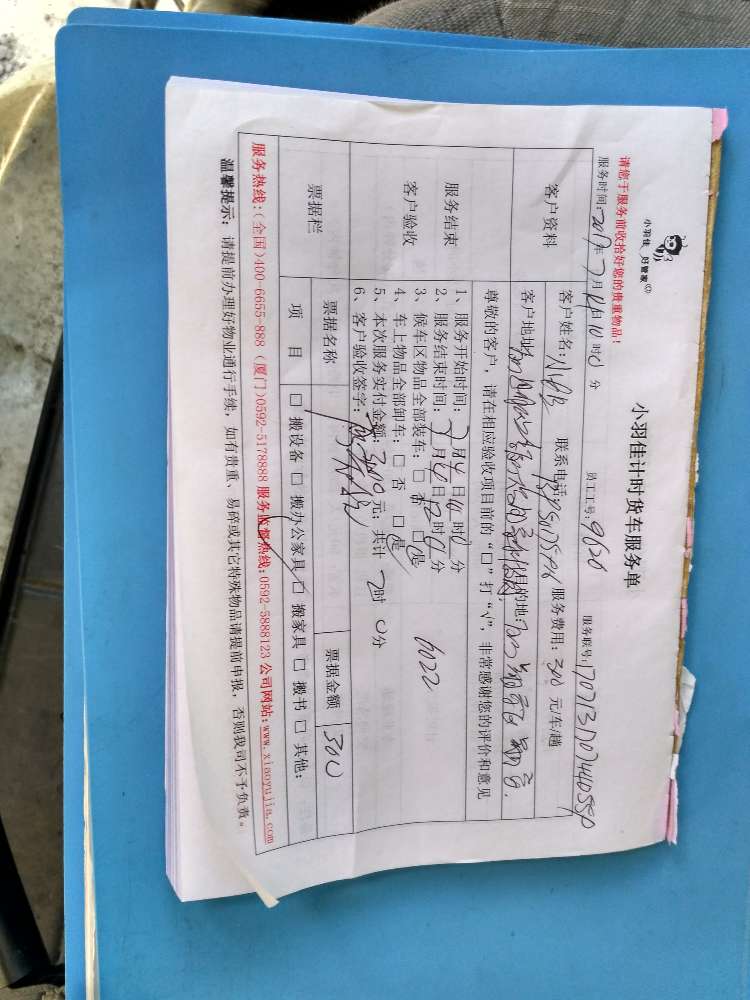 小羽佳 好管家
小羽佳计时货车服务单
请您于服务前收拾好您的贵重物品!
员工工号:9620
服务联号:
服务时间:2017年7月 日10时0分
客户资料
客户姓名:小 联系电话: 服务费用:300元/车/趟
客户地址: 目的地:
尊敬的客户,请在相应验收项目前的“口”打“√”,非常感谢您的评价和意见
服务结束
客户验收
1、服务开始时间:7月 日10时0分
2、服务结束时间:7月 日12时0分
3、候车区物品全部装车:□ 否 □是 6022
4、车上物品全部卸车:□ 否 □是
5、本次服务实付金额:300元;共计 2时 0分
6、客户验收签字:
票据栏
票据名称 票据金额 300
项 目 □ 搬设备 □ 搬办公家具 □ 搬家具 □ 搬书 □ 其他:
服务热线:(全国)400-6655-888 (厦门)0592-5178888 服务监督热线:0592-5888123 公司网站:www.xiaoyujia.com
温馨提示: 请提前办理好物业通行手续,如有贵重、易碎或其它特殊物品请提前申报,否则我司不予负责。